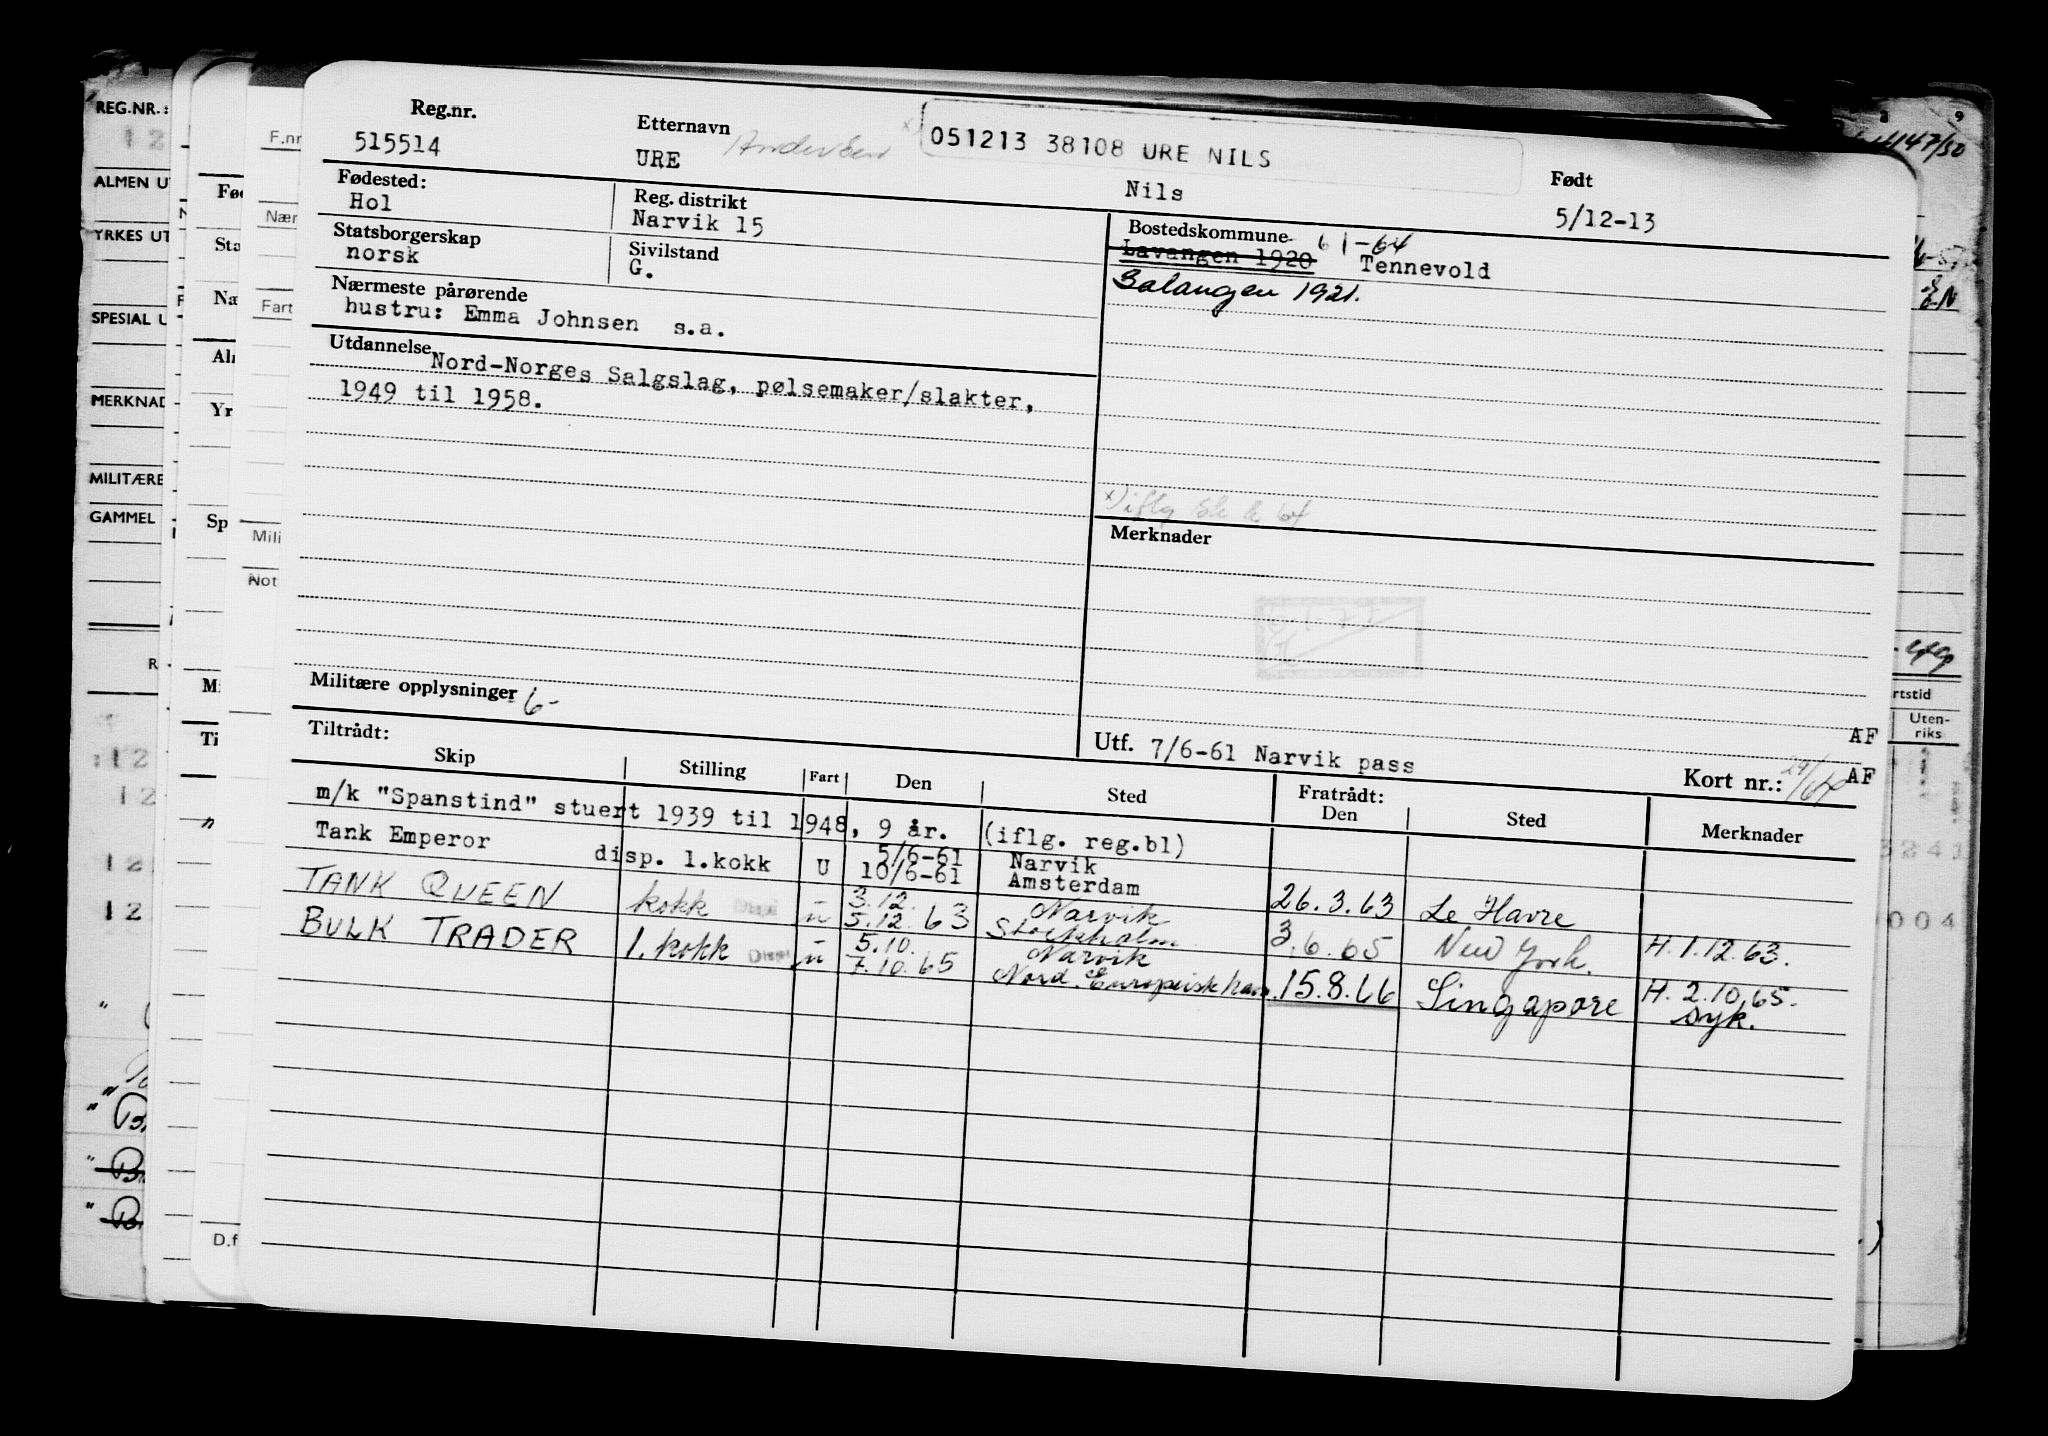 Reg.nr. Etternavn Andersen x) 051213 38108 URE NILS
515514 URE Nils Født
5/12-13
Fødested: Reg. distrikt
Hol Narvik 15
Bostedskommune 61-64
Lavangen 1920 Tennevold
Salangen 1921.
Statsborgerskap Sivilstand
norsk G.
Nærmeste pårørende
hustru: Emma Johnsen s.a.
Utdannelse
Nord-Norges Salgslag, pølsemaker/slakter,
1949 til 1958.
x) iflg
Merknader
6.1.72
Militære opplysninger 6-
Utf. 7/6-61 Narvik pass
AF
Kort nr.: 29/64 AF
Tiltrådt: Fratrådt:
Skip Stilling Fart Den Sted Den Sted Merknader
m/k "Spanstind" stuert 1939 til 1948, 9 år. (iflg. reg.bl)
Tank Emperor disp. 1.kokk U 5/6-61 Narvik
10/6-61 Amsterdam 26.3.63 Le Havre
TANK QUEEN kokk u 3.12. Narvik
5.12.63 Stockholm 3.6.65 New York. H. 1.12.63.
BULK TRADER 1. kokk u 5.10. Narvik
7.10.65 Nord. Europeisk havn 15.8.66 Singapore H. 2.10.65.
syk.
REG.NR.:
12
ALMEN UT
YRKES UT
SPESIAL U
MERKNAD
MILITÆRE
GAMMEL
F.nr
Nær
Fart
Mili
Not
Fø
Sta
Næ
Aln
Yr
Sp
Mi
Ti
D.f
8 9
147/50
-49
rtstid
Uten-
riks
3241
004